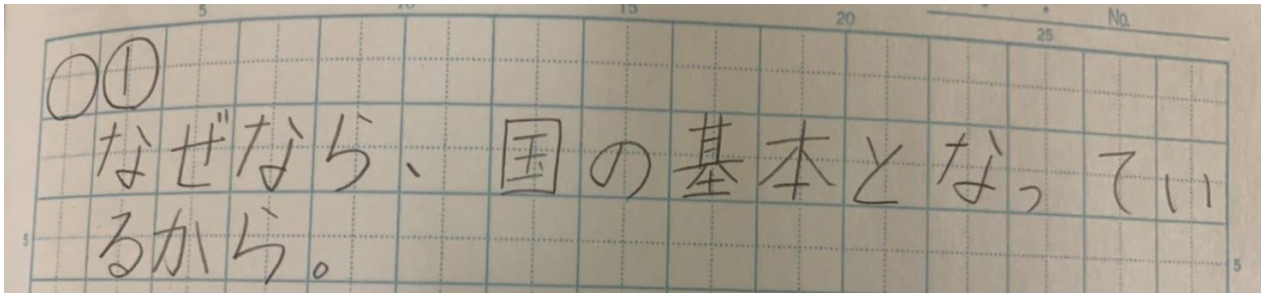 5 10 15 20 25 No.
○①
なぜなら、国の基本となってい
5 るから。 5